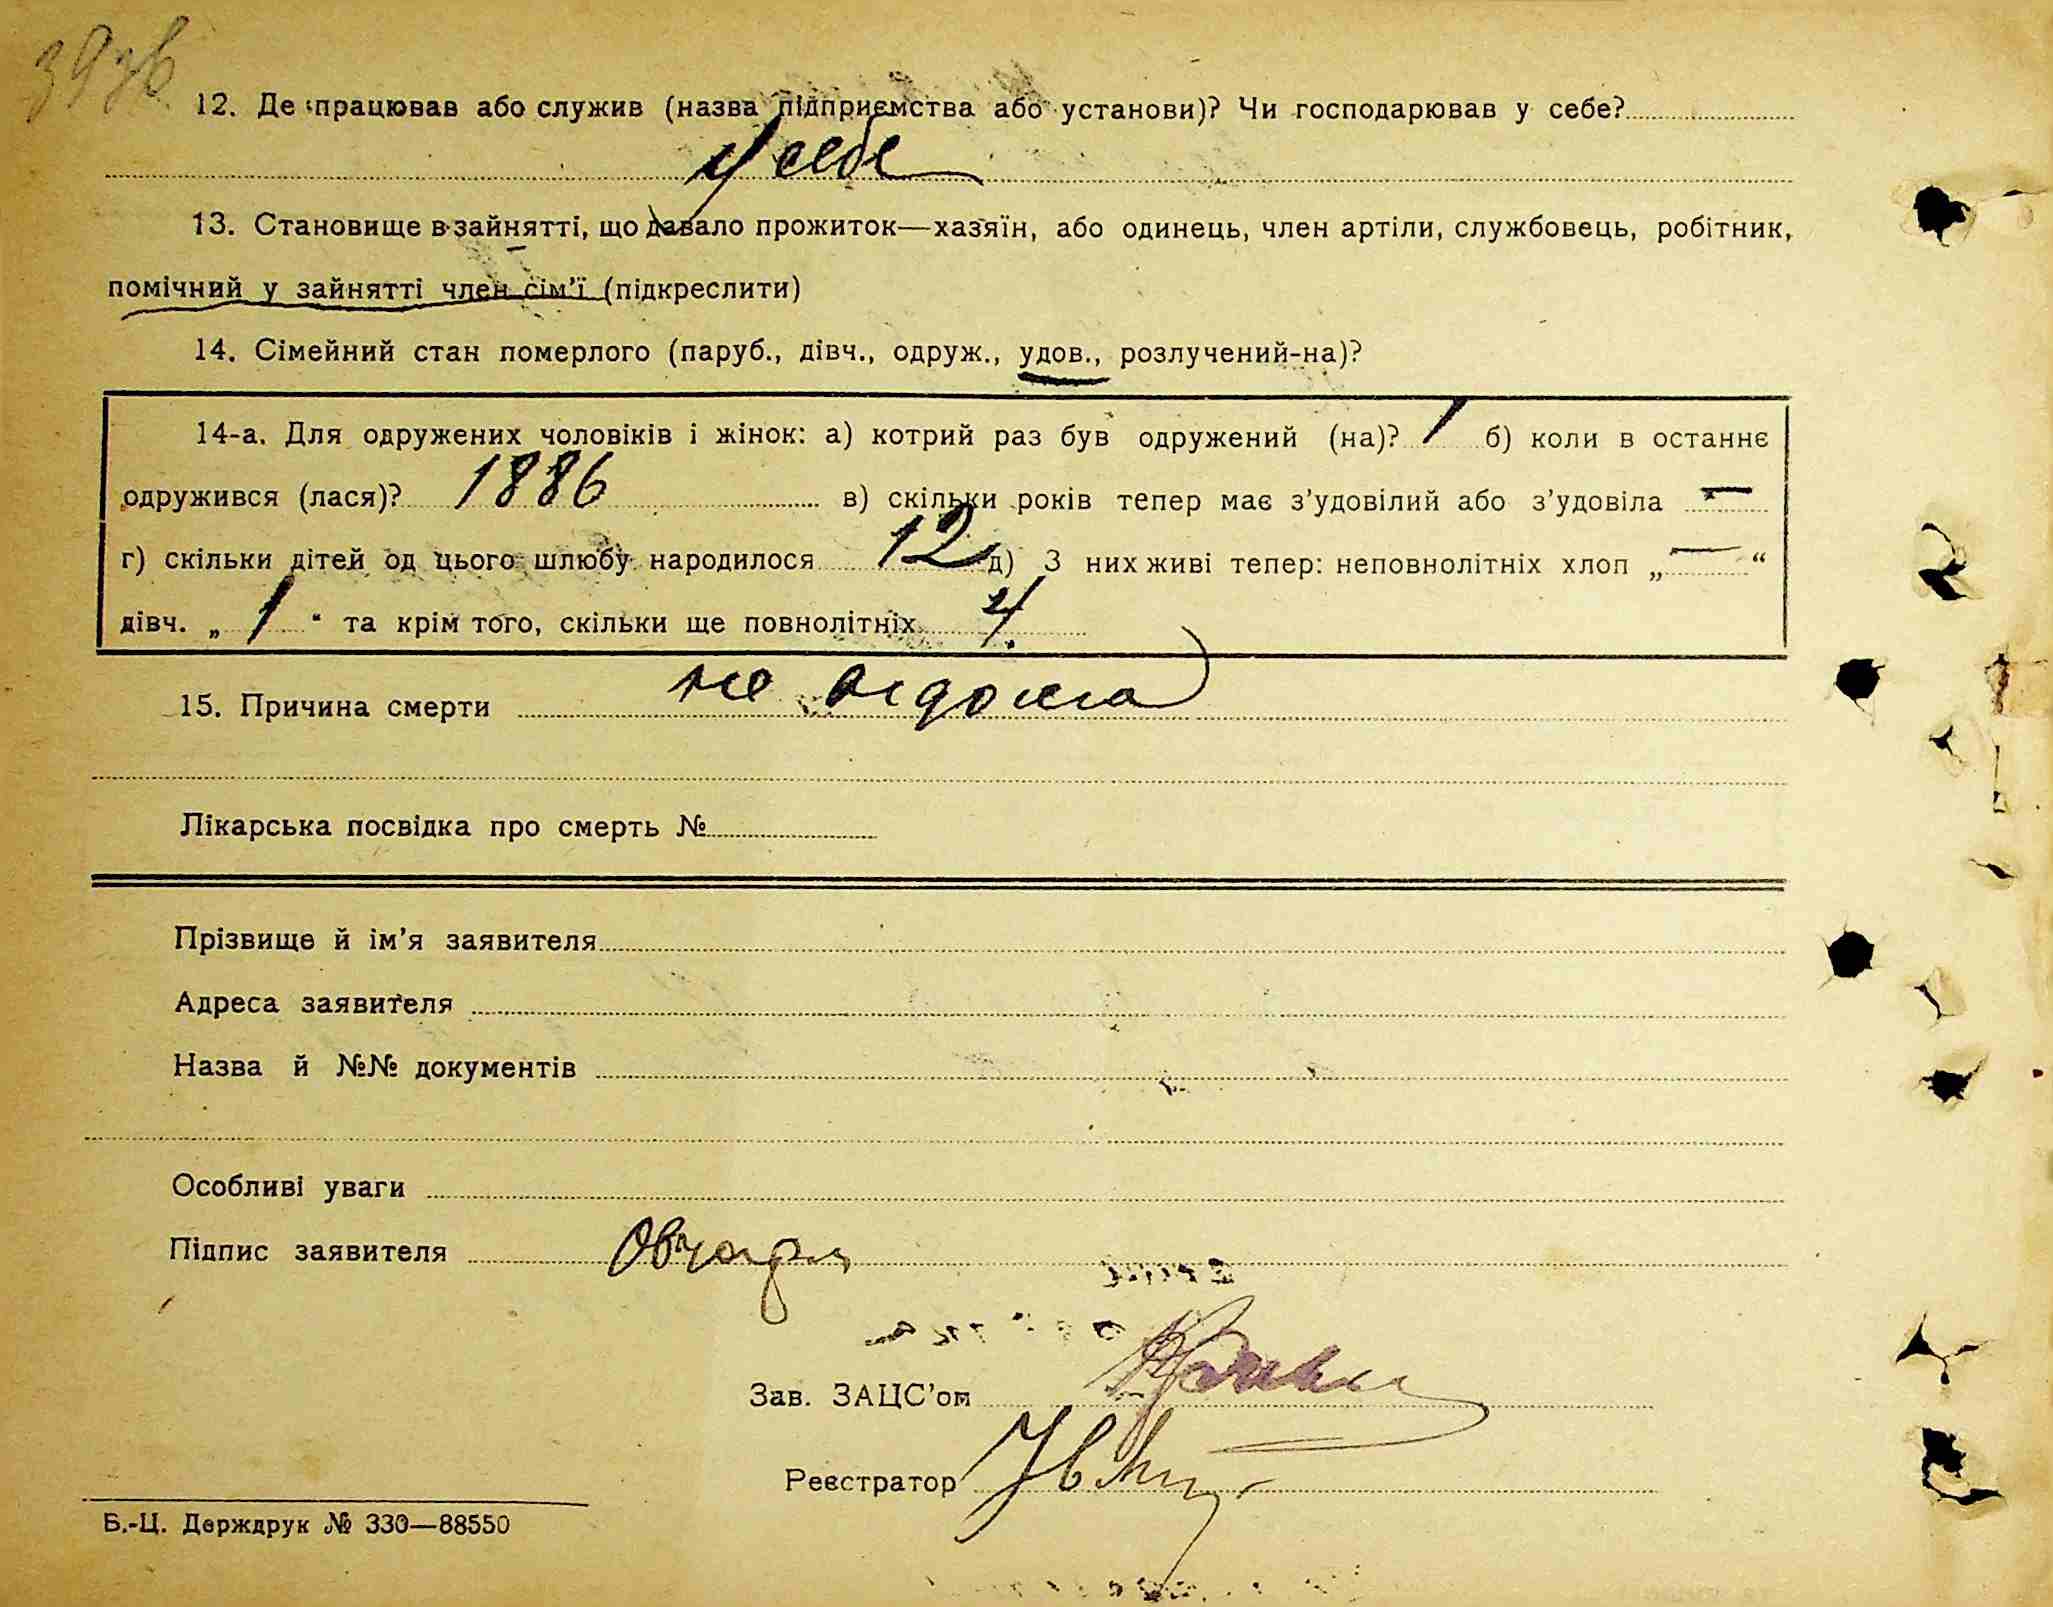 12. Де працював або служив (назва підприємства або установи)? Чи господарював у себе?
У себе
13. Становище в зайнятті, що давало прожиток—хазяїн, або одинець, член артіли, службовець, робітник,
помічний у зайнятті член сім'ї (підкреслити)
14. Сімейний стан померлого (паруб., дівч., одруж., удов., розлучений-на)?
14-а. Для одружених чоловіків і жінок: а) котрий раз був одружений (на)? 1 б) коли в останнє
одружився (лася)? 1886 в) скільки років тепер має з'удовілий або з'удовіла —
г) скільки дітей од цього шлюбу народилося 12 д) З них живі тепер: неповнолітніх хлоп „ — “
дівч. „ 1 “ та крім того, скільки ще повнолітніх 4.
15. Причина смерти не відома
Лікарська посвідка про смерть №
Прізвище й ім'я заявителя
Адреса заявителя
Назва й №№ документів
Особливі уваги
Підпис заявителя
Зав. ЗАЦС'ом
Реєстратор
Б.-Ц. Держдрук № 330—88550